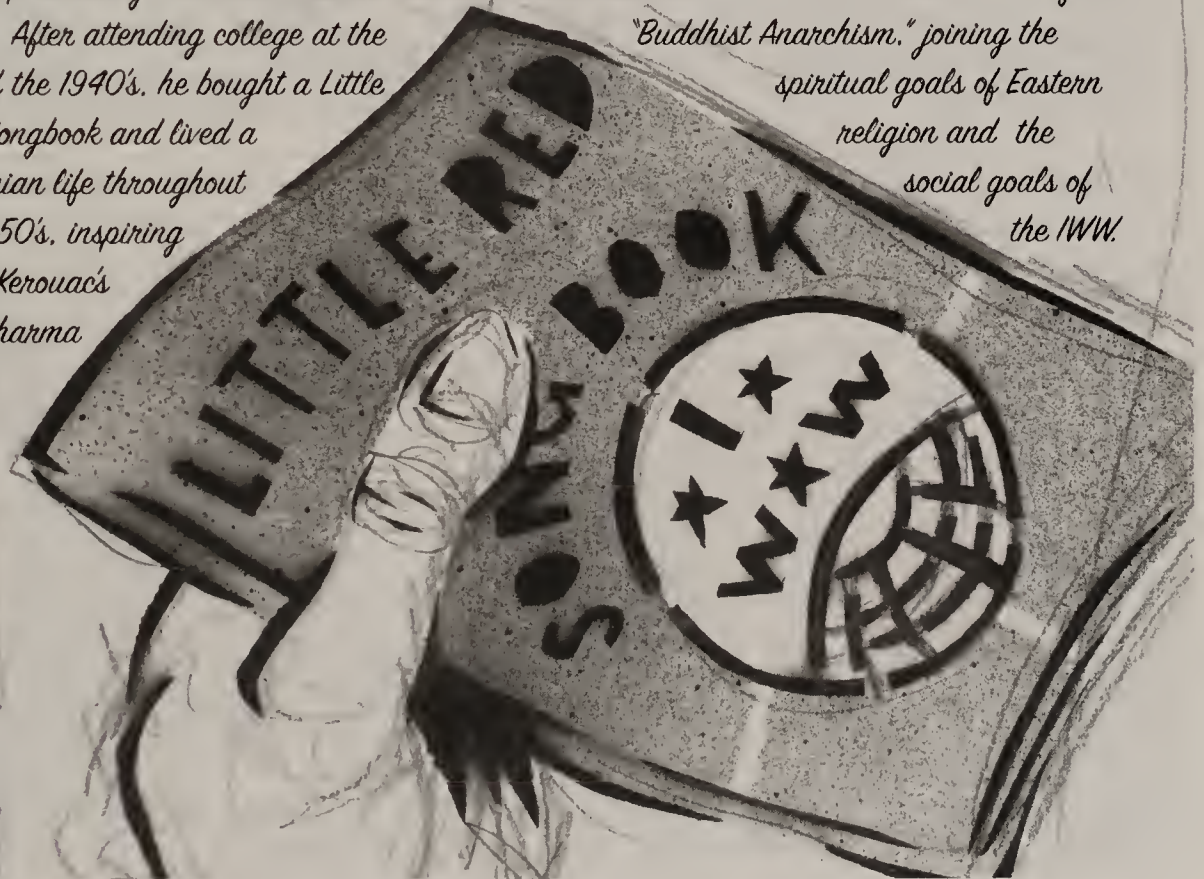 After attending college at the
the 1940's, he bought a Little
ongbook and lived a
ian life throughout
50's, inspiring
Kerouac's
harma
"Buddhist Anarchism," joining the
spiritual goals of Eastern
religion and the
social goals of
the IWW.
LITTLE RED
SONG BOOK
I★
W★W
★